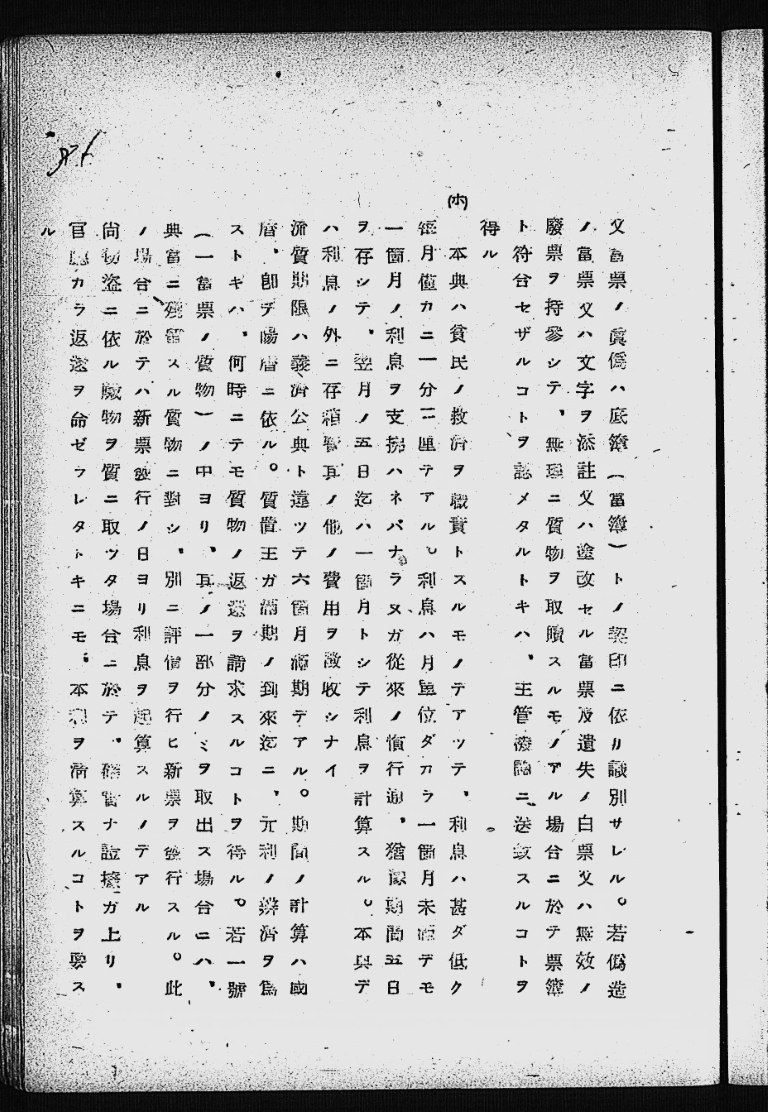 又當票ノ眞僞ハ底簿(當簿)トノ契印ニ依リ識別サレル。若僞造
ノ當票又ハ文字ヲ添註又ハ塗改セル當票及遺失ノ白票又ハ無效ノ
廢票ヲ持參シテ、無理ニ質物ヲ取贖スルモノアル場合ニ於テ票簿
ト符合セザルコトヲ認メタルトキハ、主管機關ニ送致スルコトヲ
得ル
(ホ) 本典ハ貧民ノ救濟ヲ職責トスルモノデアツテ、利息ハ甚ダ低ク
每月僅カニ一分二厘デアル。利息ハ月單位ダカラ一箇月未滿デモ
一箇月ノ利息ヲ支拂ハネバナラヌガ從來ノ慣行通、猶豫期間五日
ヲ存シテ、翌月ノ五日迄ハ一箇月トシテ利息ヲ計算スル。本典デ
ハ利息ノ外ニ存箱費其ノ他ノ費用ヲ徵收シナイ
流質期限ハ義濟公典ト違ツテ六箇月滿期デアル。期間ノ計算ハ國
曆、卽チ陽曆ニ依ル。質置主ガ滿期ノ到來迄ニ、元利ノ辨濟ヲ爲
ストキハ、何時ニテモ質物ノ返還ヲ請求スルコトヲ得ル。若一號
(一當票ノ質物)ノ中ヨリ、其ノ一部分ノミヲ取出ス場合ニハ、
典當ニ殘留スル質物ニ對シ、別ニ評價ヲ行ヒ新票ヲ發行スル。此
ノ場合ニ於テハ新票發行ノ日ヨリ利息ヲ起算スルノデアル
尚物盜ニ依ル贓物ヲ質ニ取ツタ場合ニ於テ、確實ナ證據ガ上リ、
官廳カラ返還ヲ命ゼラレタトキニモ、本利ヲ淸算スルコトヲ要ス
ル